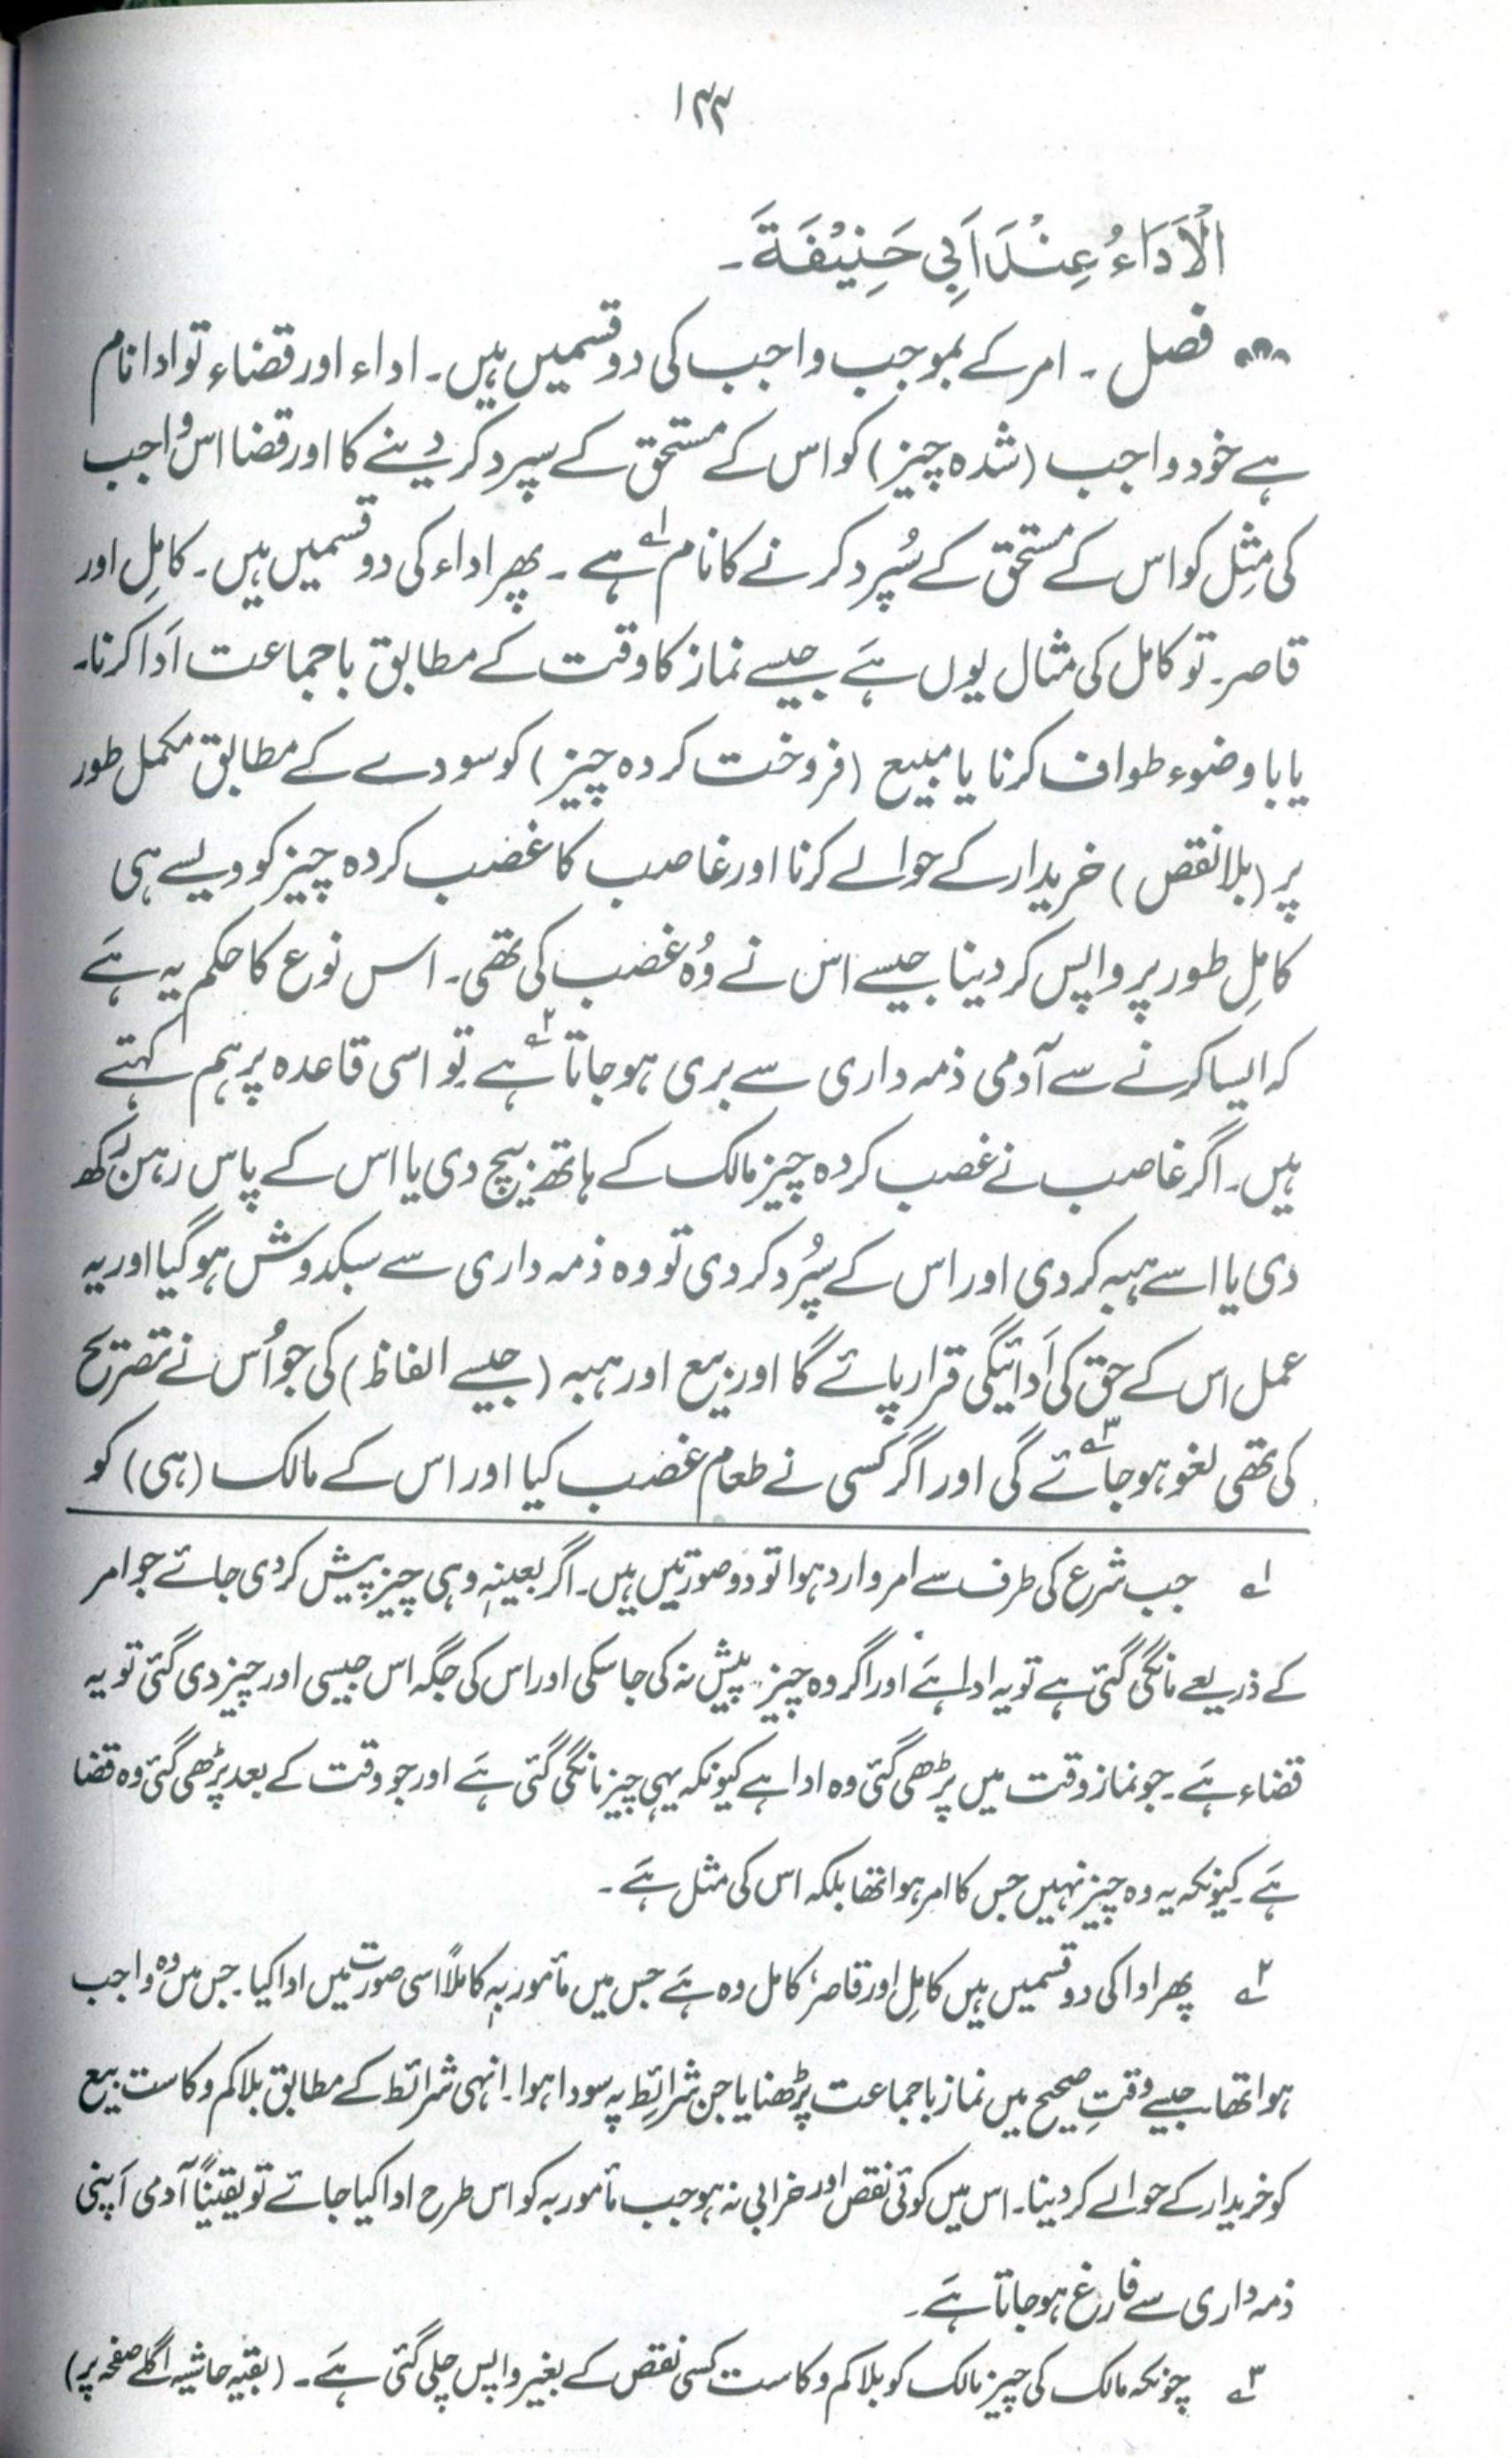 ۱۴۴
الْاَدَاءُ عِنْدَ اَبِي حَنِيْفَةَ۔
فصل ۔ امر کے بموجب واجب کی دو قسمیں ہیں۔ اداء اور قضاء تو ادا نام
ہے خود واجب (شدہ چیز) کو اس کے مستحق کے سپرد کر دینے کا اور قضا اس واجب
کی مِثِل کو اس کے مستحق کے سُپرد کرنے کا نام ہے ۱؎ ۔ پھر اداء کی دو قسمیں ہیں۔ کامِل اور
قاصر۔ تو کامل کی مثال یوں ہَے جیسے نماز کا وقت کے مطابق باجماعت اَدا کرنا۔
یا با وضوء طواف کرنا یا مبیع (فروخت کردہ چیز) کو سودے کے مطابق مکمل طور
پر (بلا نقص) خریدار کے حوالے کرنا اور غاصب کا غضب کردہ چیز کو ویسے ہی
کامِل طور پر واپس کر دینا جیسے اس نے وُہ غضب کی تھی۔ اس نوع کا حکم یہ ہَے
کہ ایسا کرنے سے آدمی ذمہ داری سے بری ہو جاتا ۲؎ ہے تو اسی قاعدہ پر ہم کہتے
ہیں۔ اگر غاصب نے غصب کردہ چیز مالک کے ہاتھ بیچ دی یا اس کے پاس رہن رکھ
دی یا اسے ہبہ کر دی اور اس کے سپُرد کر دی تو وہ ذمہ داری سے سبکدوش ہو گیا اور یہ
عمل اس کے حق کی اَدائیگی قرار پائے گا اور بیع اور ہبہ (جیسے الفاظ) کی جو اُس نے تصریح
کی تھی لغو ہو جائے ۳؎ گی اور اگر کسی نے طعام غضب کیا اور اس کے مالک (ہی) کو
۱؎ جب شرع کی طرف سے امر وارد ہوا تو دو صورتیں ہیں۔ اگر بعینہٖ وہی چیز پیش کر دی جائے جو امر
کے ذریعے مانگی گئی ہے تو یہ ادا ہَے اور اگر وہ چیز پیش نہ کی جا سکی اور اس کی جگہ اس جیسی اور چیز دی گئی تو یہ
قضاء ہَے۔ جو نماز وقت میں پڑھی گئی وہ ادا ہے کیونکہ یہی چیز مانگی گئی ہَے اور جو وقت کے بعد پڑھی گئی وہ قضا
ہَے۔ کیونکہ یہ وہ چیز نہیں جس کا امر ہوا تھا بلکہ اس کی مثل ہَے ۔
۲؎ پھر ادا کی دو قسمیں ہیں کامِل اور قاصر، کامل وہ ہَے جس میں مأمور بہٖ کاملاً اسی صورت میں ادا کیا۔ جس میں وہ واجب
ہوا تھا۔ جیسے وقتِ صحیح میں نماز باجماعت پڑھنا یا جن شرائِط پہ سودا ہوا۔ انہی شرائط کے مطابق بلا کم و کاست بیع
کو خریدار کے حوالے کر دینا۔ اس میں کوئی نقص اور خرابی نہ ہو جب مأمور بہ کو اس طرح ادا کیا جائے تو یقیناً آدمی اَپنی
ذمہ داری سے فارغ ہو جاتا ہَے۔
۳؎ چونکہ مالک کی چیز مالک کو بلا کم و کاست کسی نقص کے بغیر واپس چلی گئی ہَے۔ (بقیہ حاشیہ اگلے صفحہ پر)